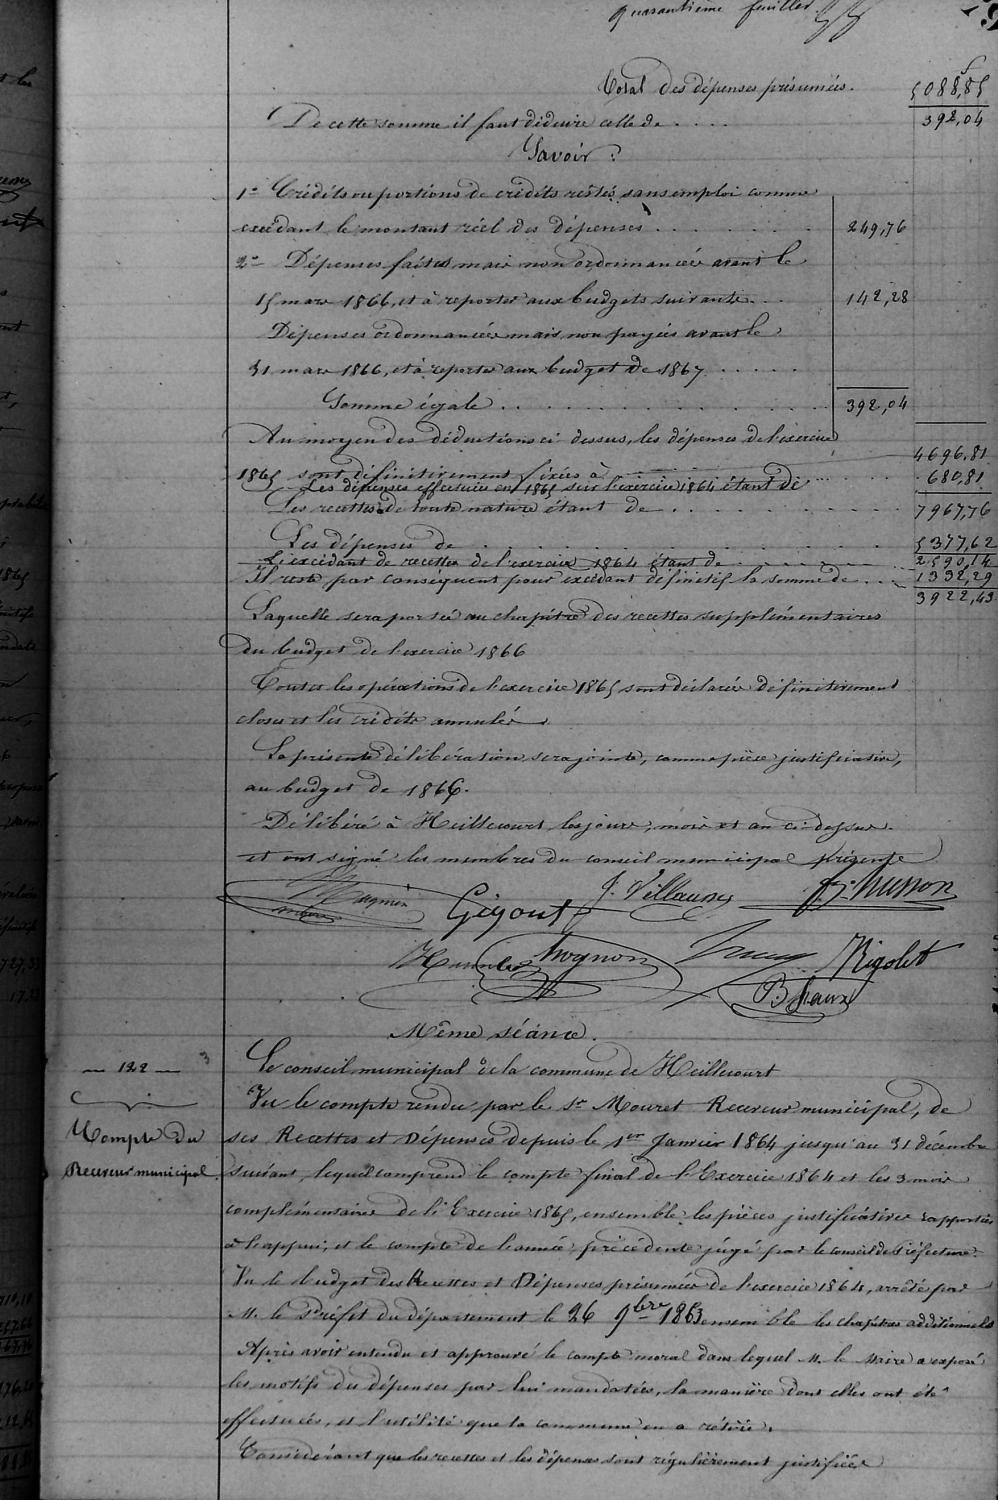 quarantième feuillet
Total des dépenses présumées. 5088,85
De cette somme il faut déduire celle de . . . . 392,04
Savoir :
1° Crédits ou portions de crédits restés sans emploi comme
excédant le montant réel des dépenses . . . . . . . 249,76
2° Dépenses faites mais non ordonnancées avant le
15 mars 1866, et à reporter aux budgets suivants . . . 142,28
Dépenses ordonnancées mais non payées avant le
31 mars 1866, et à reporter aux budget de 1867 . . . . .
Somme égale . . . . . . . . . . 392,04
Au moyen des déductions ci dessus, les dépenses de l'exercice
1865 sont définitivement fixées à . . . . . . 4696,81
Les dépenses effectuées en 1865 sur l'exercice 1864 étant de . . . 680,81
Les recettes de toute nature étant de . . . . . . . . 7967,76
Les dépenses de . . . . . . . . . . 5377,62
2590,14
L'excédant de recettes de l'exercice 1864 étant de . . . . . . 1332,29
Il reste par conséquent pour excédant définitif la somme de . . . 3922,43
Laquelle sera portée au chapitre des recettes supplémentaires
du budget de l'exercice 1866
Toutes les opérations de l'exercice 1865 sont déclarées définitivement
closes et les crédits annulés.
La présente délibération sera jointe, comme pièce justificative,
au budget de 1866.
Délibéré à Heillecourt les jour, mois et an ci-dessus.
et ont signé les membres du conseil municipal présents
Gigout J. Villaume husson
hognon Rigolet
Même séance.
— 122 —
Compte du
Receveur municipal.
Le conseil municipal de la commune de Heillecourt
Vu le compte rendu par le Sr Mouret Receveur municipal, de
ses Recettes et Dépenses depuis le 1er Janvier 1864 jusqu'au 31 décembre
suivant, lequel comprend le compte final de l'Exercice 1864 et les 3 mois
complémentaires de l'Exercice 1865, ensemble les pièces justificatives rapportées
à l'appui, et le compte de l'année précédente jugé par le conseil de Préfecture
Vu le budget des Recettes et Dépenses présumées de l'exercice 1864, arrêté par
M. le Préfet du département le 26 9bre 1863 ensemble les chapitres additionnels
Après avoir entendu et approuvé le compte moral dans lequel M. le Maire a exposé
les motifs des dépenses par lui mandatées, la manière dont elles ont été
effectuées, et l'utilité que la commune en a retiré.
Considérant que les recettes et les dépenses sont régulièrement justifiées